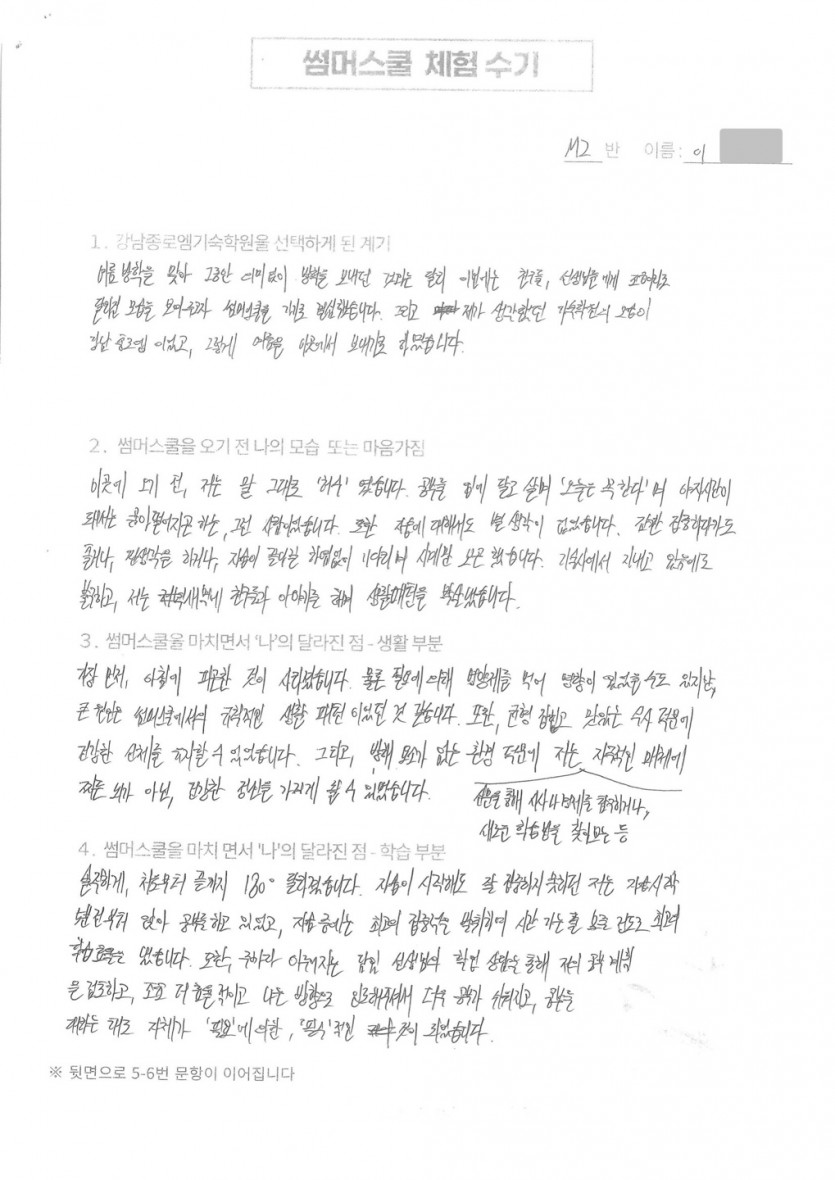 썸머스쿨 체험 수기
M2 반 이름 : 이
1. 강남종로엠기숙학원을 선택하게 된 계기
여름방학을 맞아 그동안 의미없이 방학을 보내던 것과는 달리 이번에는 친구들, 선생님들에게
달라진 모습을 보여주고자 썸머스쿨을 가기로 결심했습니다. 그리고 제가 생각했던 기숙학원의 모습이
강남종로엠 이었고, 그렇게 여름을 이곳에서 보내기로 하였습니다.
2. 썸머스쿨을 오기 전 나의 모습 또는 마음가짐
이곳에 오기 전, 저는 말 그대로 '허수' 였습니다. 공부를 입에 달고 살며 '오늘은 꼭 한다' 며 야자시간이
되서는 곯아떨어지곤 하는, 그런 사람이었습니다. 또한 자습에 대해서도 별 생각이 없었습니다. 잠깐 집중하다가도
졸거나, 딴생각을 하거나, 자습이 끝나길 하염없이 기다리며 시계만 보곤 했습니다. 기숙사에서 지내고 있음에도
불구하고, 저는 새벽에 친구들과 이야기를 하며 생활패턴을 부쉈습니다.
3. 썸머스쿨을 마치면서 '나'의 달라진 점 - 생활 부분
가장 먼저, 아침에 피곤한 것이 사라졌습니다. 물론 필요에 의해 영양제를 먹어 영향이 있었을 수도 있지만,
큰 원인은 썸머스쿨에서의 규칙적인 생활 패턴이었던 것 같습니다. 또한, 균형 잡히고 맛있는 식사 덕분에
건강한 신체를 유지할 수 있었습니다. 그리고, 방해 요소가 없는 환경 덕분에 저는 자극적인 매체에
찌든 뇌가 아닌, 건강한 정신을 가지게 될 수 있었습니다.
신문을 통해 시사나 경제를 접하거나,
새로운 학습법을 찾아보는 등
4. 썸머스쿨을 마치 면서 '나'의 달라진 점 - 학습 부분
솔직하게, 처음부터 끝까지 180° 달라졌습니다. 자습이 시작해도 잘 집중하지 못하던 저는 자습시작
5분전부터 앉아 공부를 하고 있었고, 자습 중에는 최고의 집중력을 발휘하여 시간 가는 줄 모를 정도로 최고의
학습효율을 냈습니다. 또한, 주마다 이루어지는 담임 선생님의 학업 상담을 통해 저의 공부 계획
을 검토하고, 조금 더 효율적이고 나은 방향으로 인도해주셔서 더욱 공부가 쉬워지고, 공부를
대하는 태도 자체가 '필요'에 의한, '필수'적인 것이 되었습니다.
※ 뒷면으로 5-6번 문항이 이어집니다